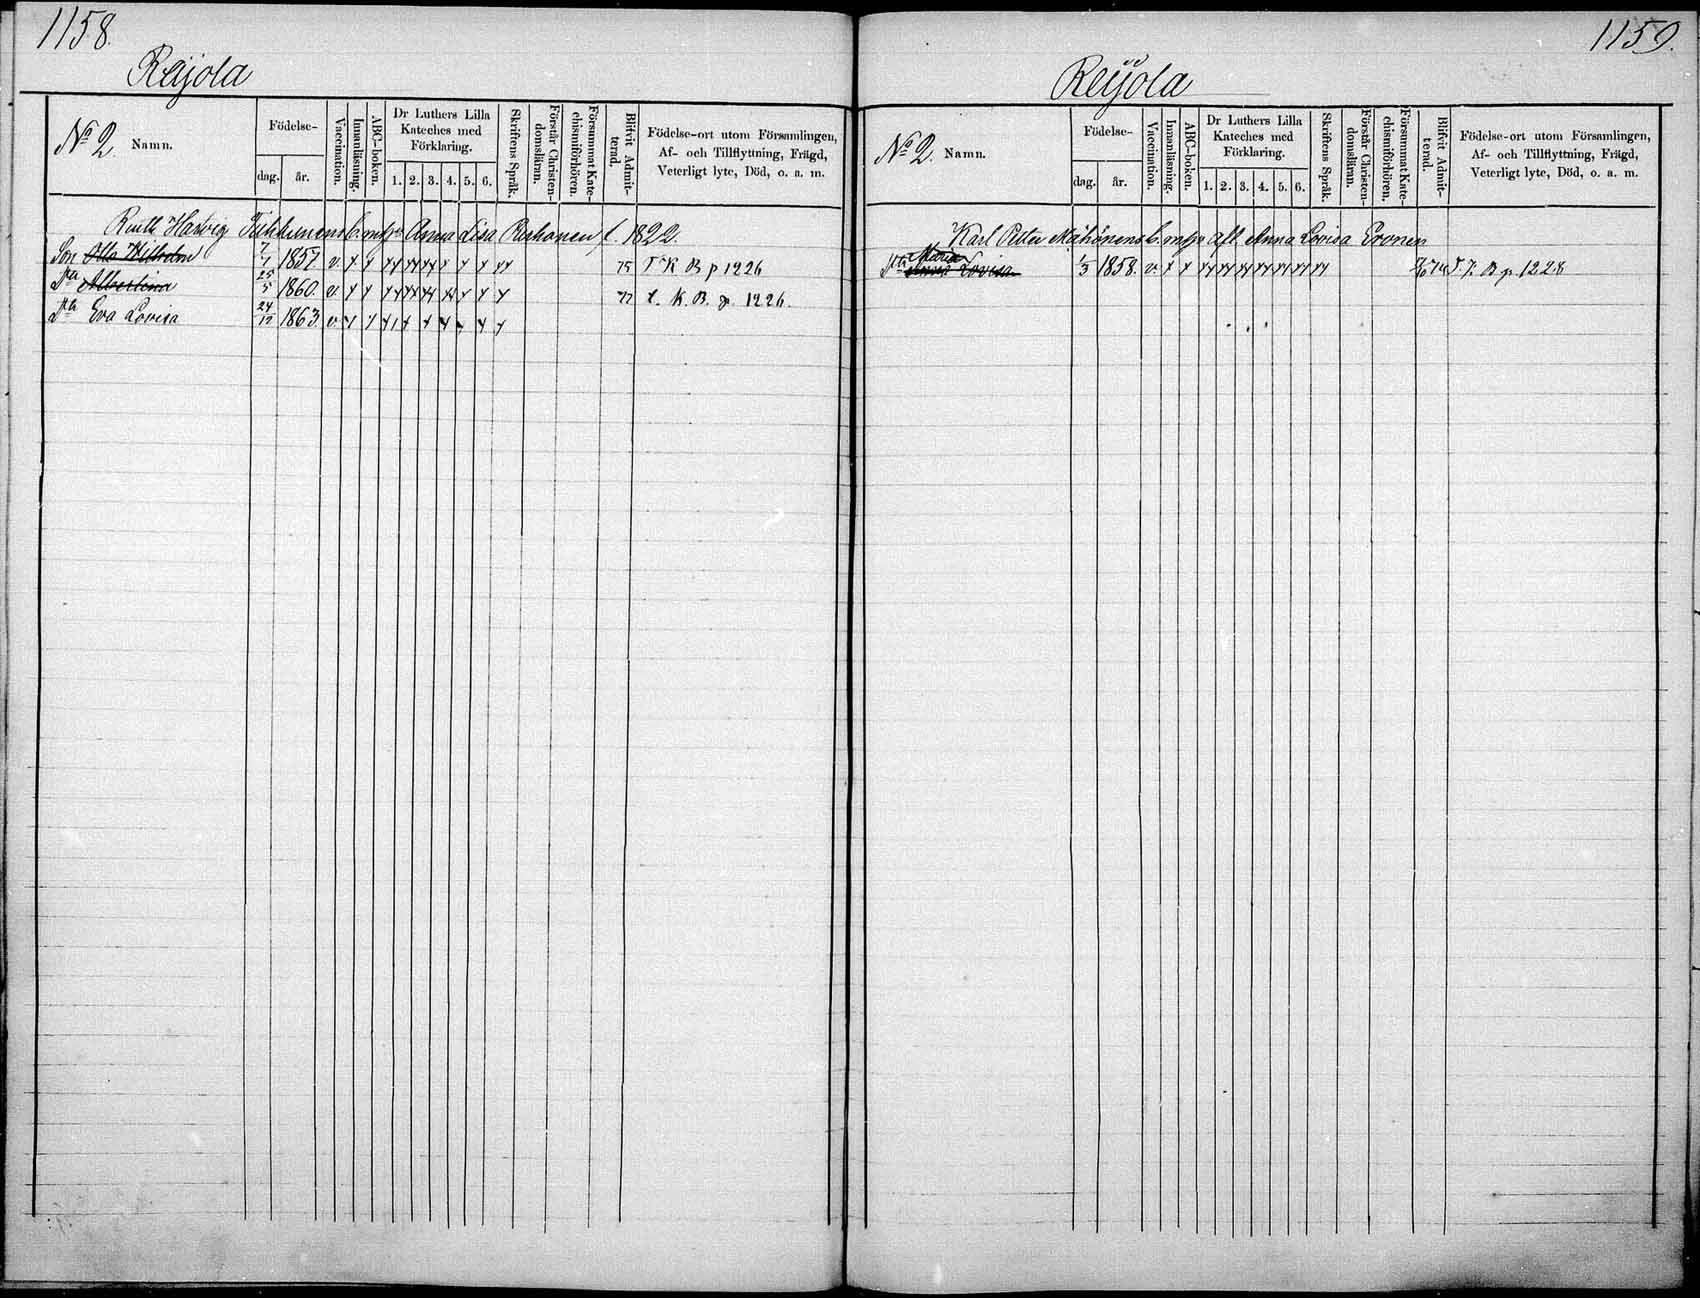 1158.
Reijola
Nº 2. Namn.
Födelse-
dag. år.
Vaccination.
Innanläsning.
ABC-boken.
Dr Luthers Lilla
Kateches med
Förklaring.
1. 2. 3. 4. 5. 6.
Skriftens Språk.
Förstår Christen-
domsläran.
Försummat Kate-
chismiförhören.
Blifvit Admit-
terad.
Födelse-ort utom Församlingen,
Af- och Tillflyttning, Frägd,
Veterligt lyte, Död, o. a. m.
Hartvig Anna Lisa f. 1822.
Son Otto Wilhelm 7/1 1857 v. 75 K B p 1226
Dra Albertina 25/5 1860. v. 77 K. B. p 1226.
Dra Eva Lovisa 24/12 1863. v.
1159.
Reijola
Nº 2. Namn.
Födelse-
dag. år.
Vaccination.
Innanläsning.
ABC-boken.
Dr Luthers Lilla
Kateches med
Förklaring.
1. 2. 3. 4. 5. 6.
Skriftens Språk.
Förstår Christen-
domsläran.
Försummat Kate-
chismiförhören.
Blifvit Admit-
terad.
Födelse-ort utom Församlingen,
Af- och Tillflyttning, Frägd,
Veterligt lyte, Död, o. a. m.
Karl Petter Mähönens b. m. aft. Anna Lovisa Eronen
Maria
Dra Lovisa 1/3 1858. v. B p. 1228